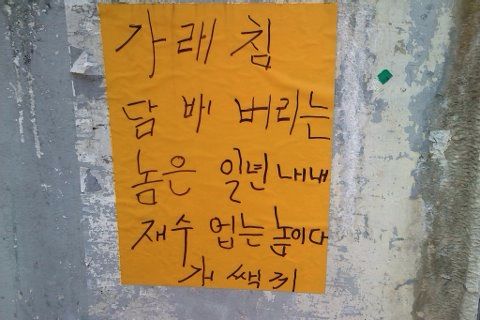 가래침
담배 버리는
놈은 일년 내내
재수 업는 놈이다
개쌕끼